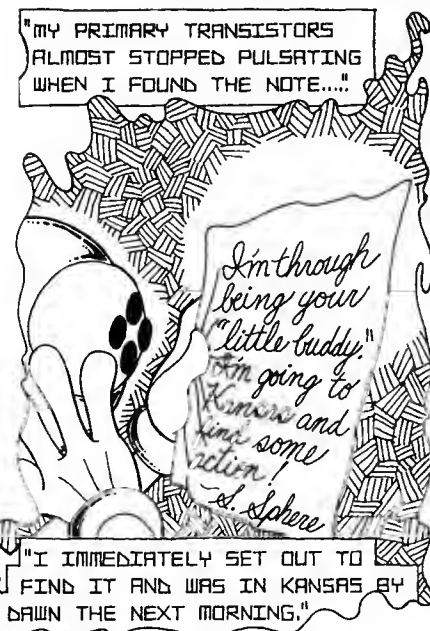 "MY PRIMARY TRANSISTORS
ALMOST STOPPED PULSATING
WHEN I FOUND THE NOTE...."
I'm through
being your
"little buddy."
I'm going to
Kansas and
find some
action!
~S. Sphere
"I IMMEDIATELY SET OUT TO
FIND IT AND WAS IN KANSAS BY
DAWN THE NEXT MORNING."